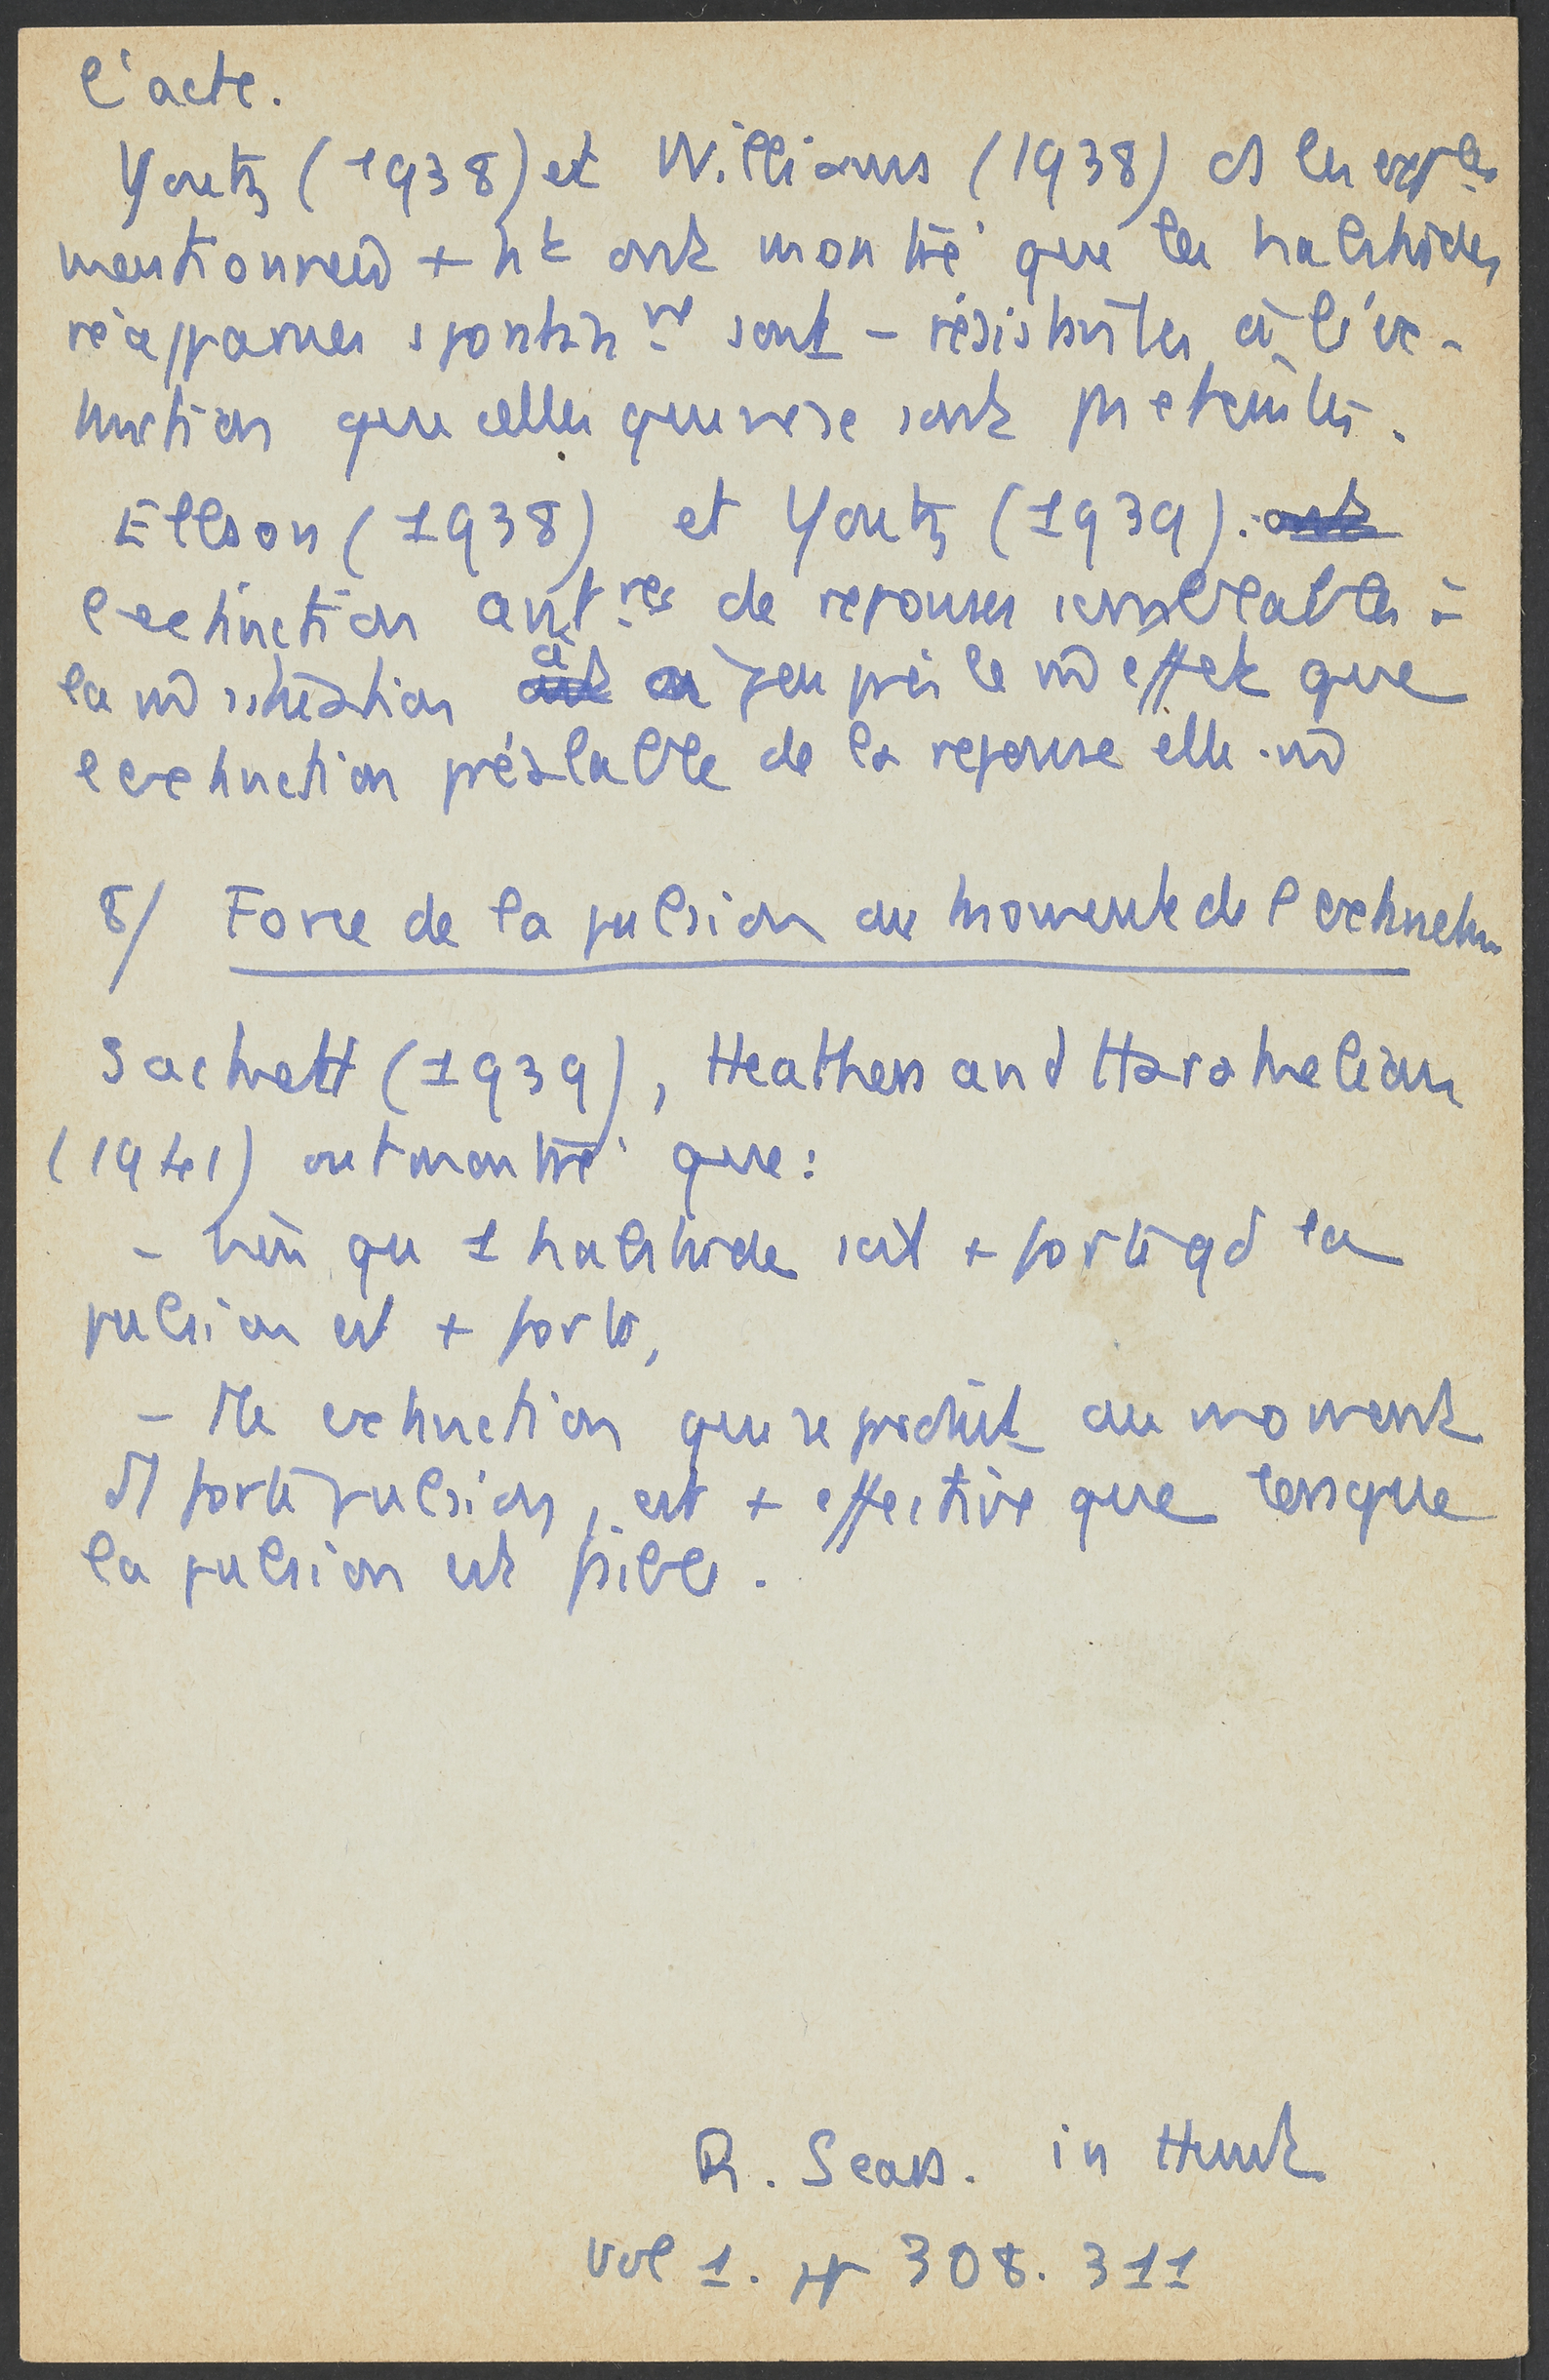 l'acte.
Youtz (1938) et Williams (1938) ds les expces
mentionnées + ht ont montré que les habitudes
réapparues spontanmt sont – résistantes à l'ex-
tinction que celles qui ne se sont pas éteintes.
Ellson (1938) et Youtz (1939).
l'extinction antre de reponses semblables à
la m̂ situation a à peu près le m̂ effet que
l extinction préalable de la reponse elle-m̂
8/ Force de la pulsion au moment de l extinction
Sackett (1939), Heathers and Arakelian
(1941) ont montré que:
– bien qu 1 habitude soit + forte qd la
pulsion est + forte,
– 1 extinction qui se produit au moment
d1 forte pulsion, est + effective que lorsque
la pulsion est faible.
R. Sears. in Hunt
Vol 1. pp 308. 311